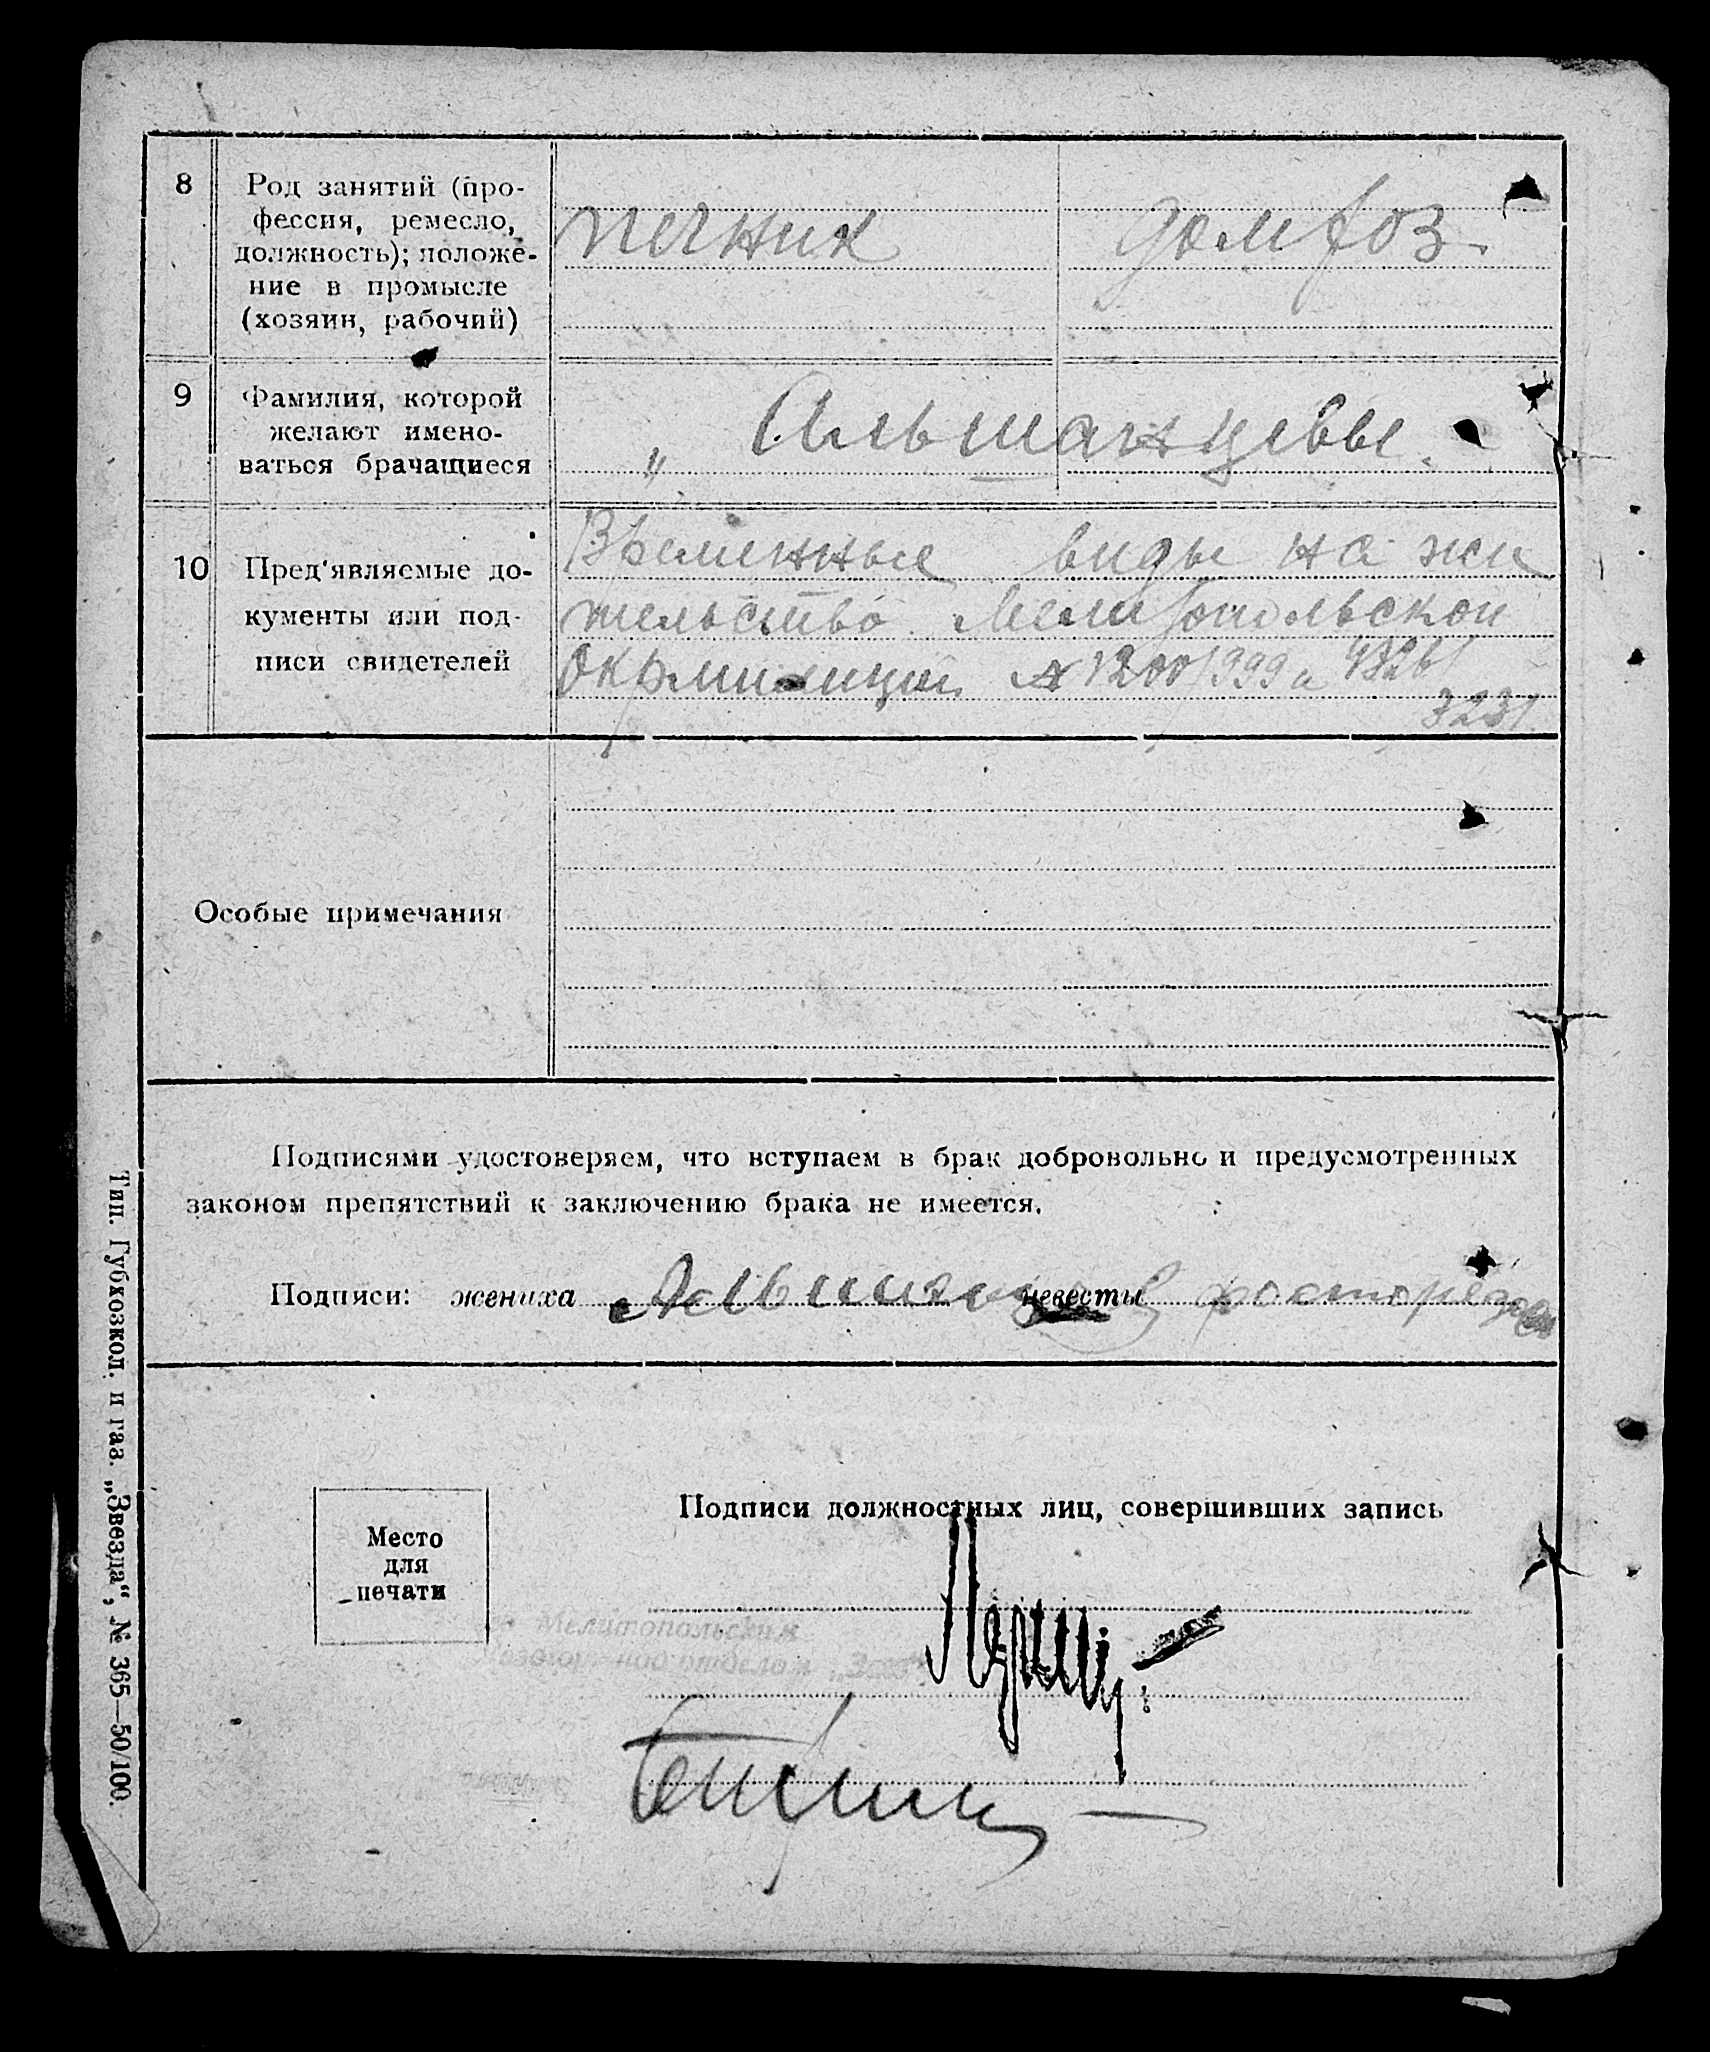 8
Род занятий (про-
фессия, ремесло,
должность); положе-
ние в промысле
(хозяин, рабочий)
печник
домхоз.
9
Фамилия, которой
желают имено-
ваться брачащиеся
„ Альшанцевы.
10
Пред'являемые до-
кументы или под-
писи свидетелей
Временные виды на жи
тельство Мелитопольской
Окрмилиции № 1200/999 и
3231
Особые примечания
Подписями удостоверяем, что вступаем в брак добровольно и предусмотренных
законом препятствий к заключению брака не имеется.
Подписи: жениха невесты
Подписи должностных лиц, совершивших запись
Место
для
печати
Мелитопольским
Тип. Губкозкол. и газ. „Звезда“, № 365—50/100.